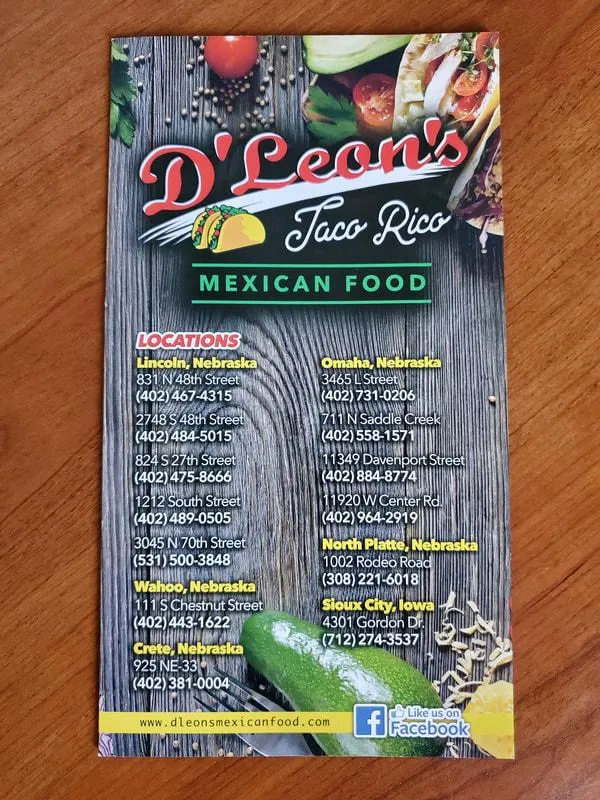 D'Leon's
Taco Rico
MEXICAN FOOD
LOCATIONS
Lincoln, Nebraska
831 N 48th Street
(402) 467-4315
2748 S 48th Street
(402) 484-5015
824 S 27th Street
(402) 475-8666
1212 South Street
(402) 489-0505
3045 N 70th Street
(531) 500-3848
Wahoo, Nebraska
111 S Chestnut Street
(402) 443-1622
Crete, Nebraska
925 NE-33
(402) 381-0004
Omaha, Nebraska
3465 L Street
(402) 731-0206
711 N Saddle Creek
(402) 558-1571
11349 Davenport Street
(402) 884-8774
11920 W Center Rd.
(402) 964-2919
North Platte, Nebraska
1002 Rodeo Road
(308) 221-6018
Sioux City, Iowa
4301 Gordon Dr.
(712) 274-3537
www.dleonsmexicanfood.com
f
Like us on
Facebook